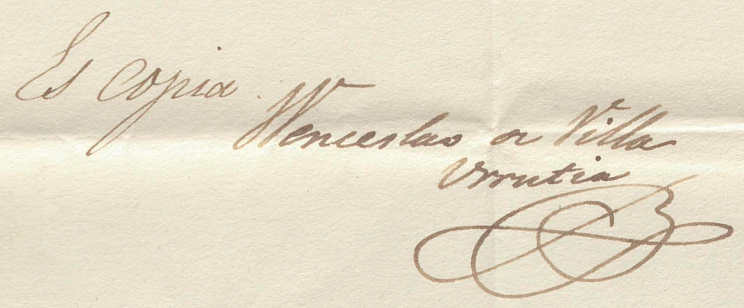 Es copia.
Wenceslao de Villa
Urrutia